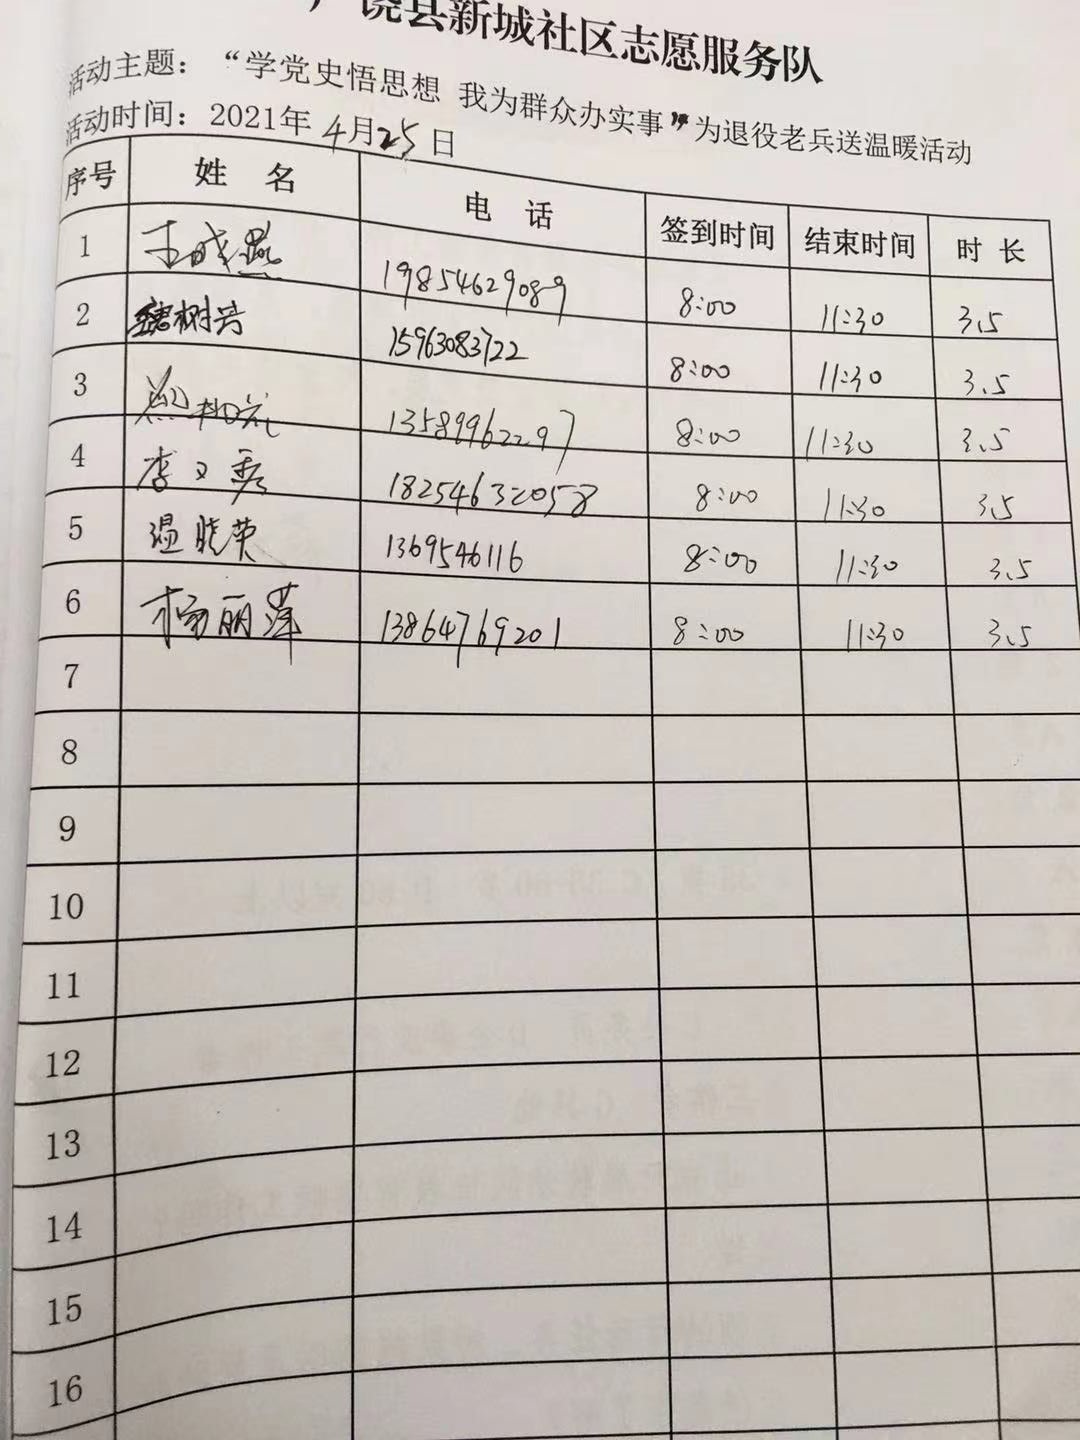 广饶县新城社区志愿服务队
活动主题：“学党史悟思想 我为群众办实事”为退役老兵送温暖活动
活动时间：2021年4月25日
序号 姓 名 电 话 签到时间 结束时间 时 长
1 王晓燕 19854629089 8:00 11:30 3.5
2 树 15963083722 8:00 11:30 3.5
3 13589962297 8:00 11:30 3.5
4 李 18254632058 8:00 11:30 3.5
5 温晓荣 1369546116 8:00 11:30 3.5
6 杨丽萍 13864769201 8:00 11:30 3.5
7
8
9
10
11
12
13
14
15
16